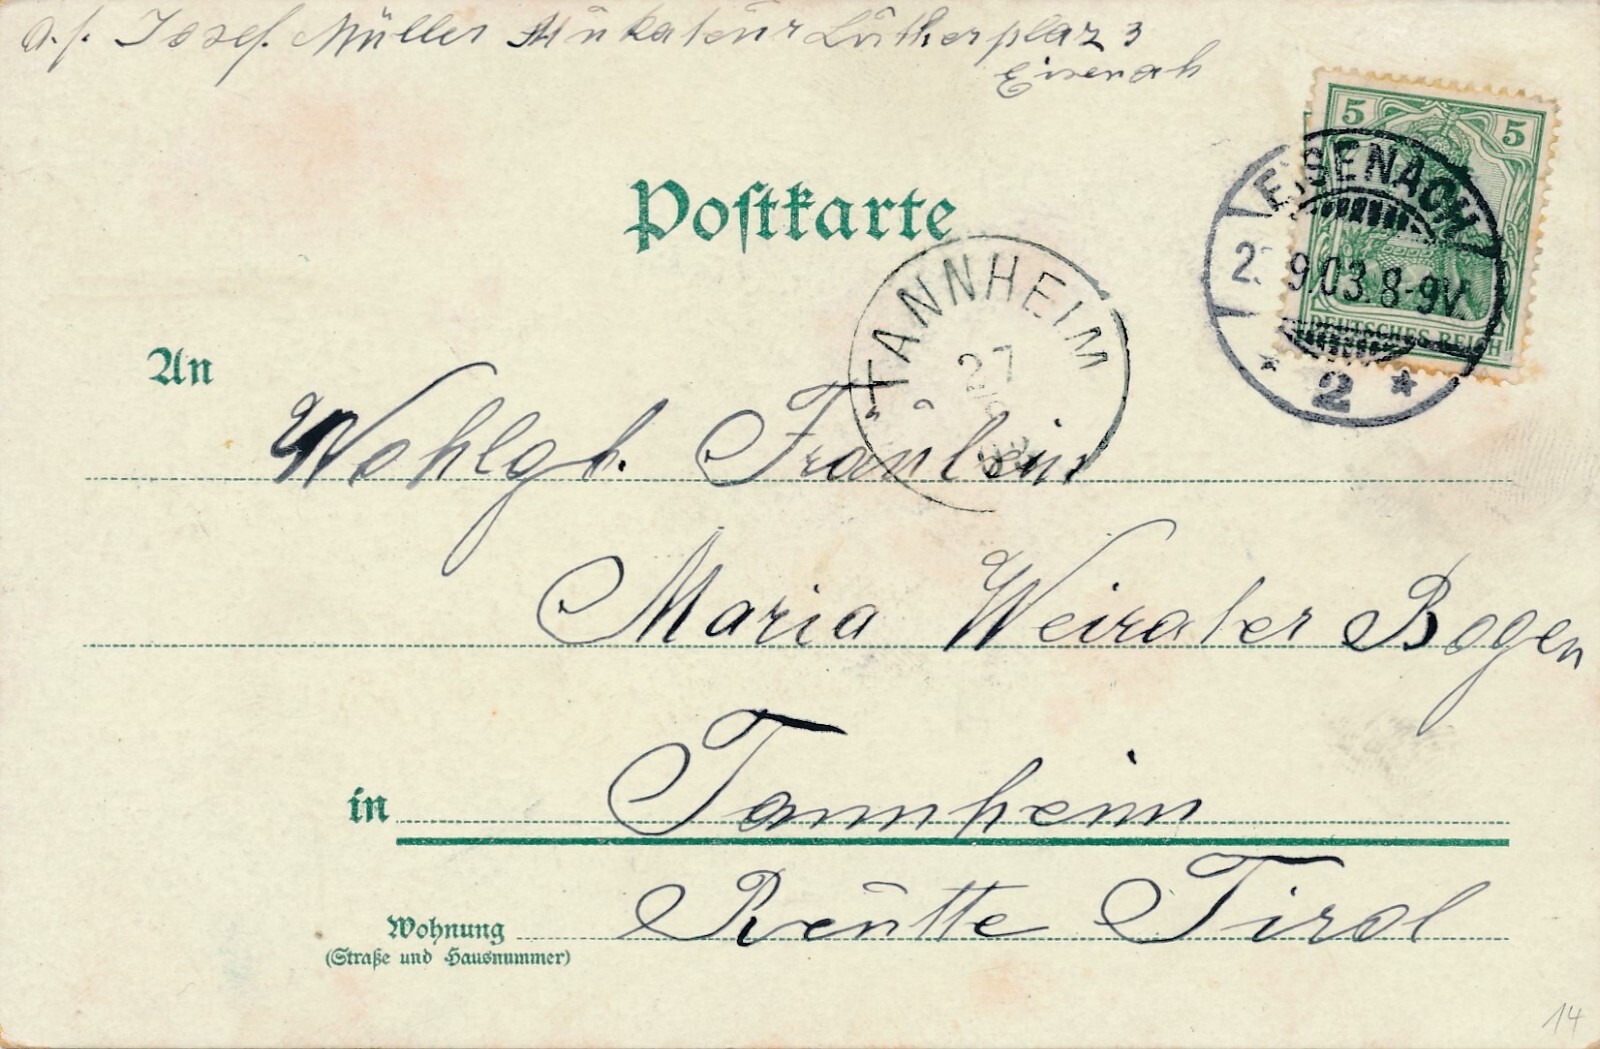 a. / . Josef. Müller Stukateur Lutherplaz 3
Eisenah
5 5
DEUTSCHES REICH
EISENACH
9.03. 8-9V.
* 2 *
Postkarte
TANNHEIM
27
9
An
Wohlgb. Fräulein
Maria Weirater Bogen
in Tannheim
Wohnung Reutte Tirol
(Straße und Hausnummer)
14